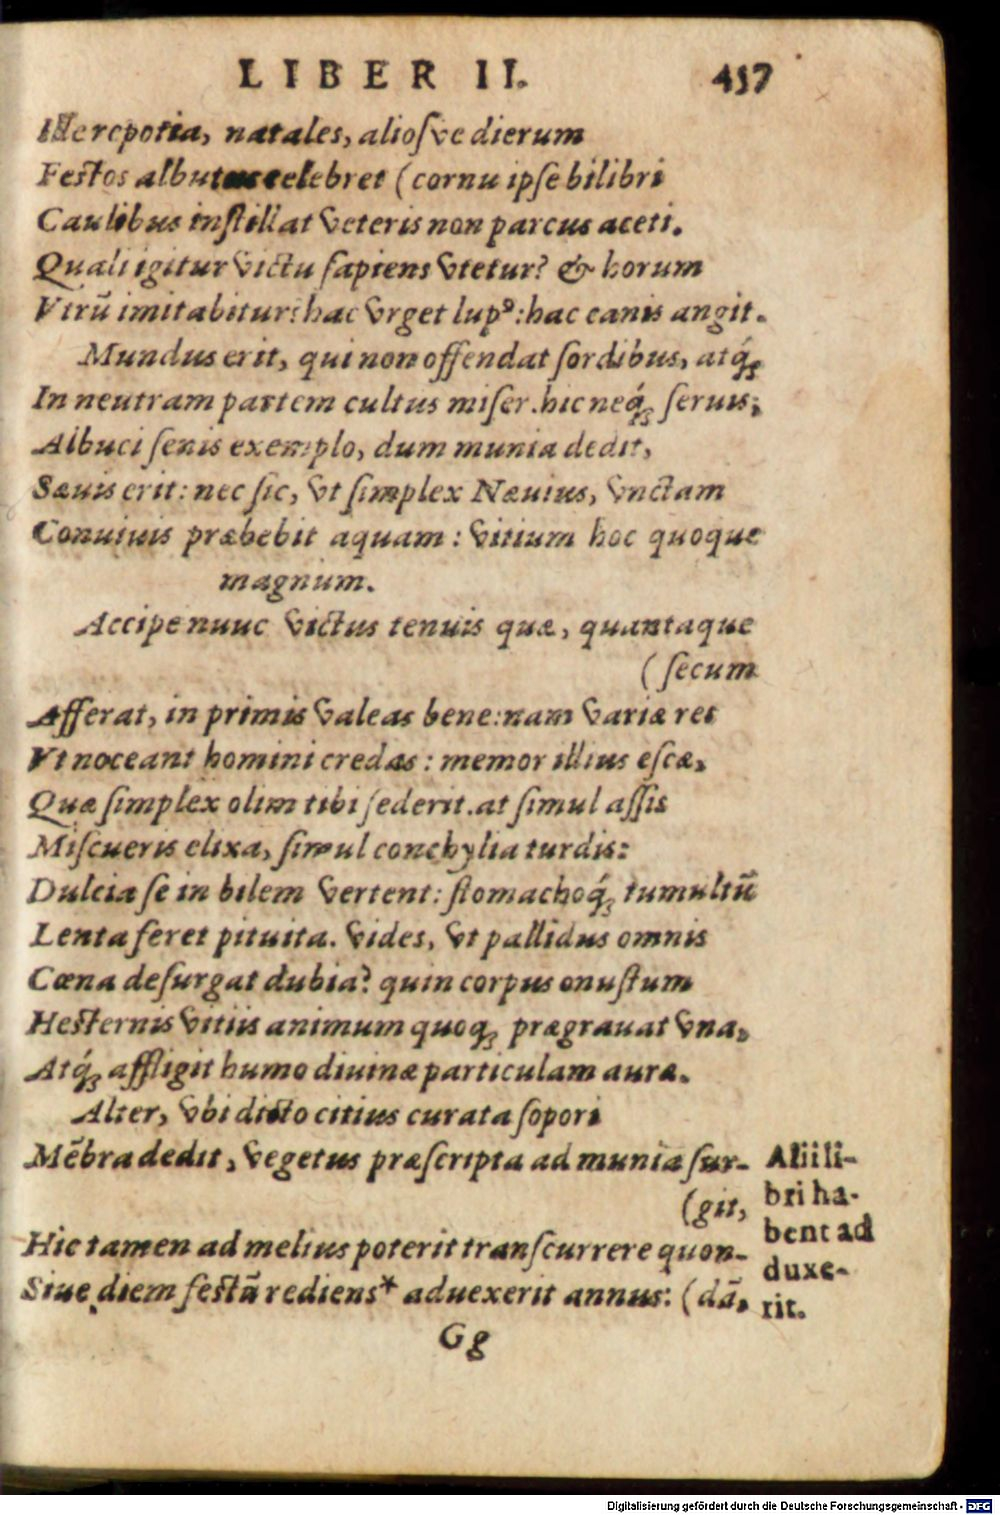 LIBER II. 457
Ille repotia, natales, aliosve dierum
Festos albutus celebret (cornu ipse bilibri
Caulibus instillat veteris non parcus aceti.
Quali igitur victu sapiens vtetur? & horum
Vtrũ imitabitur? hac vrget lupꝰ: hac canis angit.
Mundus erit, qui non offendat sordibus, atq́;
In neutram partem cultus miser. hic neq́; seruis,
Albuci senis exemplo, dum munia dedit,
Sæuis erit: nec sic, vt simplex Næuius, vnctam
Conuiuis præbebit aquam: vitium hoc quoque
magnum.
Accipe nuuc victus tenuis quæ, quantaque
(secum
Afferat, in primis valeas bene: nam variæ res
Vt noceant homini credas: memor illius escæ,
Quæ simplex olim tibi sederit. at simul assis
Miscueris elixa, simul conchylia turdis:
Dulcia se in bilem vertent: stomachoq́; tumultũ
Lenta feret pituita. vides, vt pallidus omnis
Cœna desurgat dubia? quin corpus onustum
Hesternis vitiis animum quoq; prægrauat vna,
Atq́; affligit humo diuinæ particulam auræ.
Alter, vbi dicto citius curata sopori
Mẽbra dedit, vegetus præscripta ad munia sur-
(git,
Hic tamen ad melius poterit transcurrere quon-
Siue diem festũ rediens* aduexerit annus: (dã,
Alii li-
bri ha-
bent ad
duxe-
rit.
Gg
Digitalisierung gefördert durch die Deutsche Forschungsgemeinschaft - DFG